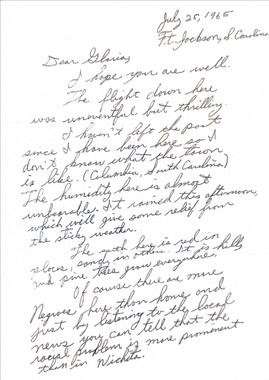 July 25, 1965
Ft. Jackson, S Carolina
Dear Gloria,
I hope you are well.
The flight down here
was uneventful but thrilling.
I haven't left the post
since I have been here so I
don't know what the town
is like. (Columbia, South Carolina)
The humidity here is almost
unbearable. It rained this afternoon,
which will give some relief from
the sticky weather.
The earth here is red in
places, sandy in others. It is hilly
and pine trees grow everywhere.
Of course there are more
Negroes here than home and
just by listening to the local
news you can tell that the
racial problem is more prominent
than in Wichita.